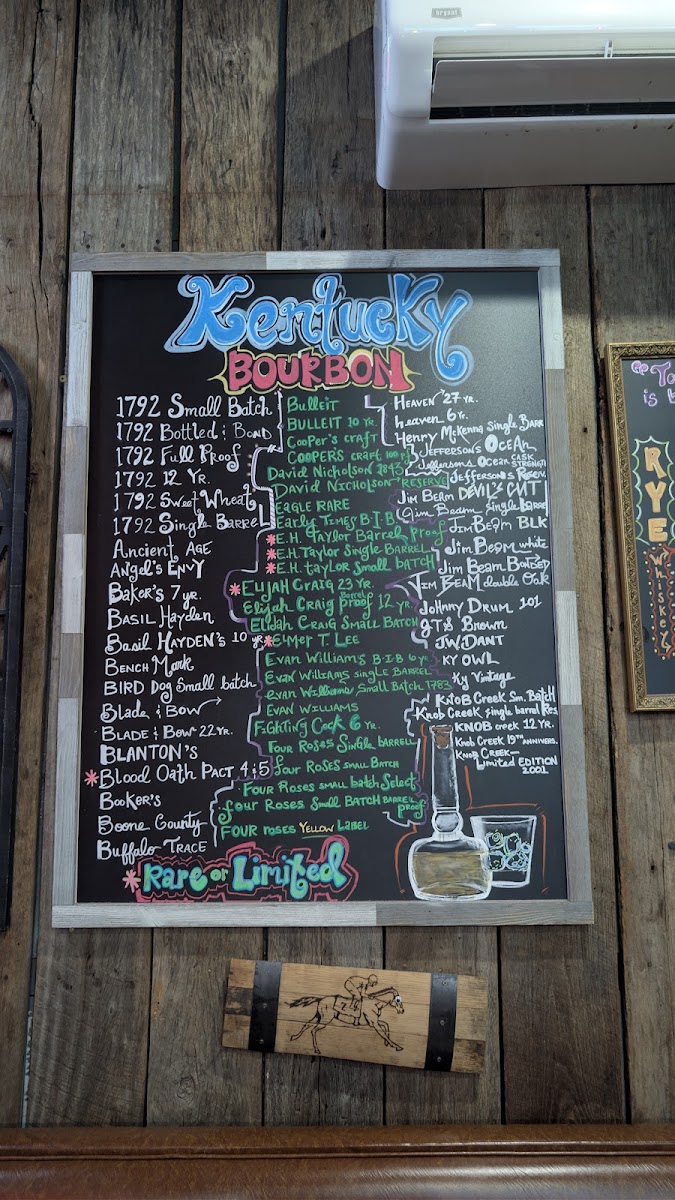 bryant
Kentucky
BOURBON
1792 Small Batch
1792 Bottled & Bond
1792 Full Proof
1792 12 Yr.
1792 Sweet Wheat
1792 Single Barrel
Ancient AGE
Angel's Envy
Baker's 7 yr.
Basil Hayden
Basil Hayden's 10 yr
Bench Mark
BIRD Dog Small batch
Blade & Bow
BLADE & Bow 22 yr.
BLANTON'S
* Blood Oath Pact 4&5
Booker's
Boone County
Buffalo TRACE
Bulleit
BULLEIT 10 yr.
Cooper's craft
COOPERS craft 100 pf
David Nicholson 1843
DAVID NICHOLSON RESERVE
EAGLE RARE
Early Times B.I.B
* E.H. Taylor Barrel Proof
* E.H. Taylor Single BARREL
* E.H. taylor Small BATCH
* ElijAH CRAIG 23 YR.
Elijah Craig Barrel proof 12 yr
Elijah Craig SMALL BATCH
* Elmer T. LEE
Evan Williams B.I.B 6 yr.
Evan Williams single BARREL
evan Williams Small Batch 1783
EVAN WILLIAMS
Fighting Cock 6 yr.
Four Roses Single barrel
four ROSES SMALL BATCH
Four Roses small batch Select
four Roses Small BATCH BARREL proof
FOUR roses Yellow LABEL
Heaven 27 YR.
heaven 6 yr.
Henry McKenna single Barr
Jefferson's Ocean
Jeffersons Ocean CASK STRENGTH
Jefferson's Reserv.
Jim Beam DEVIL'S CUT
Jim Beam single barrel
Jim Beam BLK
Jim Beam white
Jim Beam Bonded
Jim BEAM double Oak
Johnny DRUM 101
JTS Brown
J.W. DANT
KY OWL
Ky Vintage
KNOB Creek Sm. Batch
Knob Creek single barrel Res
KNOB creek 12 YR.
Knob Creek 19TH ANNIVERS.
KNOB CREEK—
Limited EDITION
2001
* Rare or Limited
To
is b
RYE
Whiskey